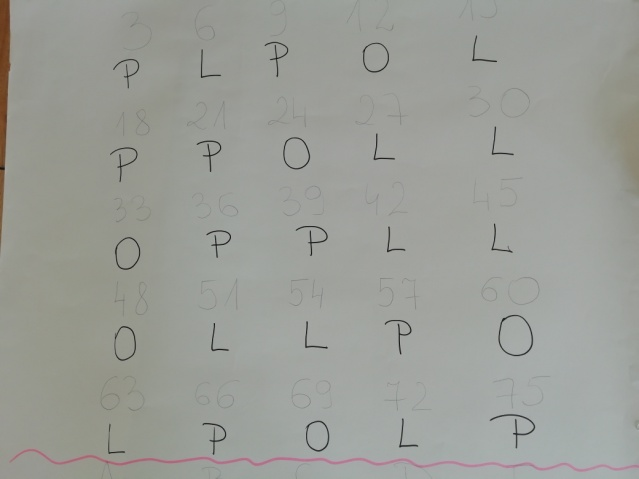 3 6 9 12 15
P L P O L
18 21 24 27 30
P P O L L
33 36 39 42 45
O P P L L
48 51 54 57 60
O L L P O
63 66 69 72 75
L P O L P